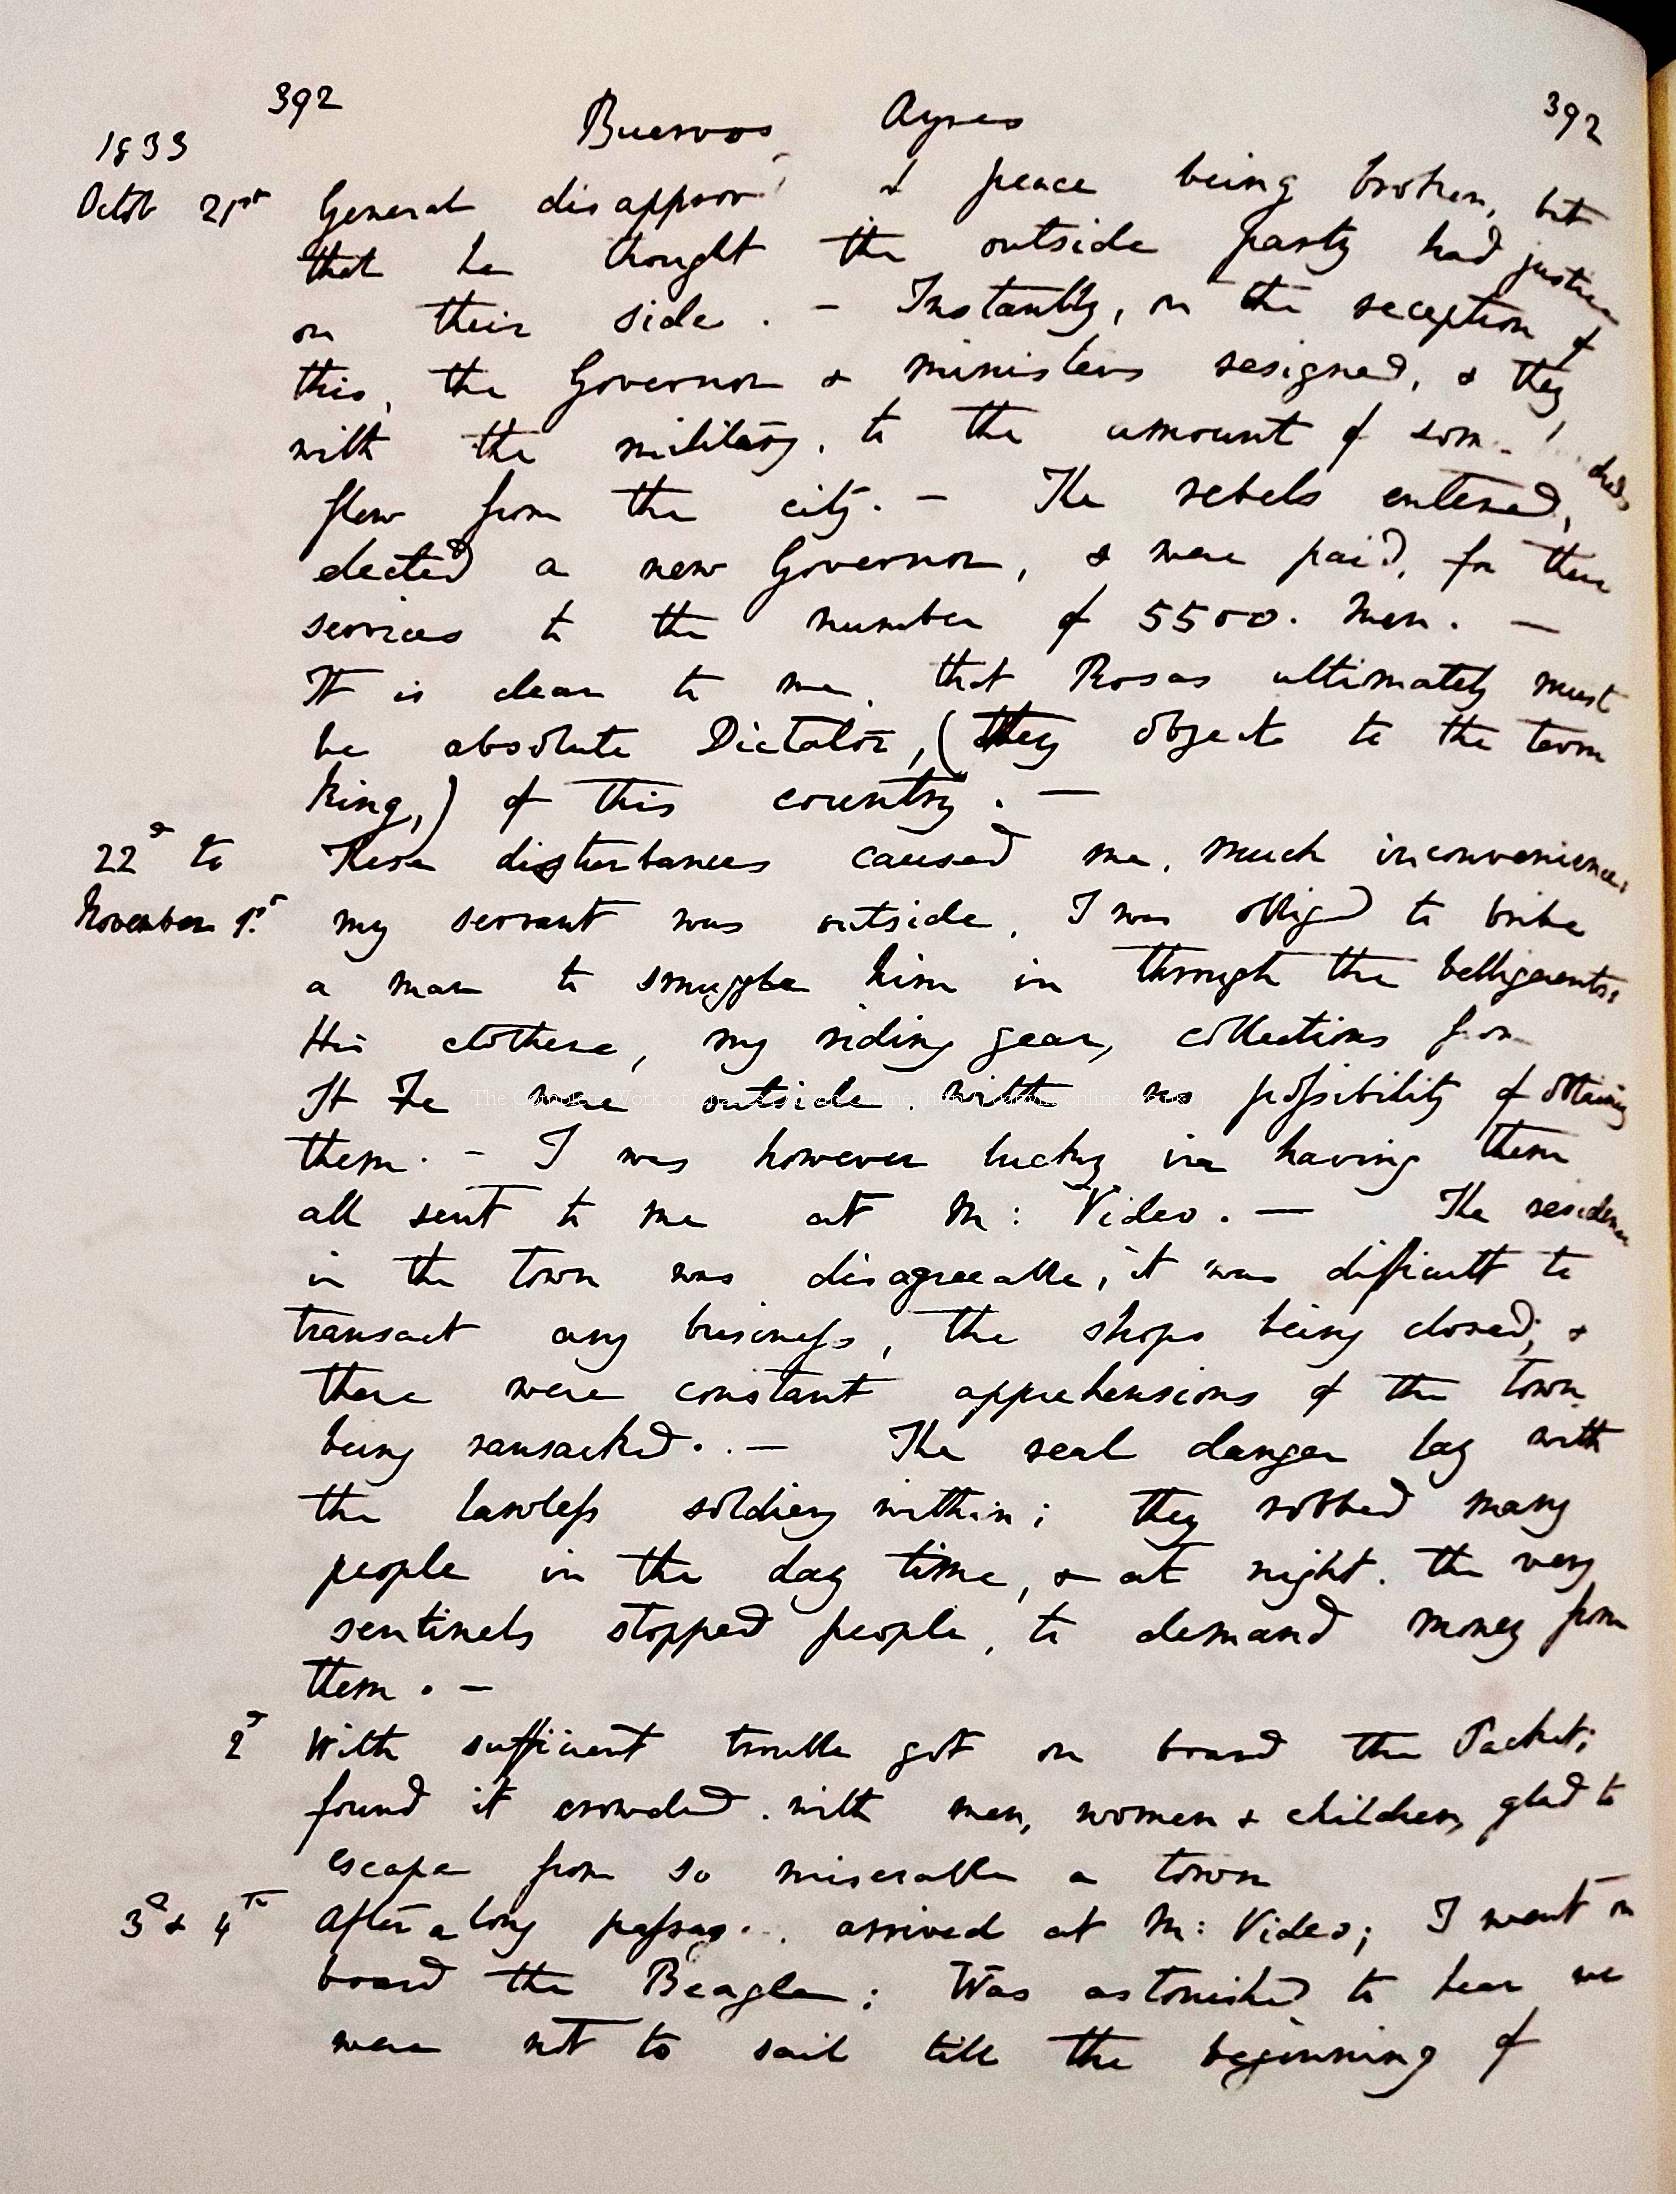 392 Buenos Ayres 392
1833
Octob 21st General disapprov & peace being broken, but
that he thought the outside party had justice
on their side. — Instantly, on the reception of
this, the Governor & ministers resigned, & they
with the military, to the amount of some
flew from the city. — The rebels entered,
elected a new Governor, & were paid, for their
services to the number of 5500. Men. —
It is clear to me, that Rosas ultimately must
be absolute Dictator, (they object to the term
King,) of this country. —
22d to These disturbances caused me, much inconvenience,
November 1st my servant was outside, I was obliged to bribe
a man to smuggle him in through the belligerents.
His clothese, my riding gear, collections from
St Fe were outside, with no possibility of obtaining
them. — I was however lucky in having them
all sent to me at M: Video. — The residence
in the town was disagreeable, it was difficult to
transact any business, the shops being closed; &
there were constant apprehensions of the town
being ransacked. — The real danger lay with
the lawless soldiery within; they robbed many
people in the day time, & at night. the very
sentinels stopped people, to demand money from
them. —
2d With sufficient trouble got on board the Packet;
found it crowded with men, women & children, glad to
escape from so miserable a town
3d & 4th After a long passage arrived at M: Video; I went on
board the Beagle: Was astonished to hear we
were not to sail till the beginning of